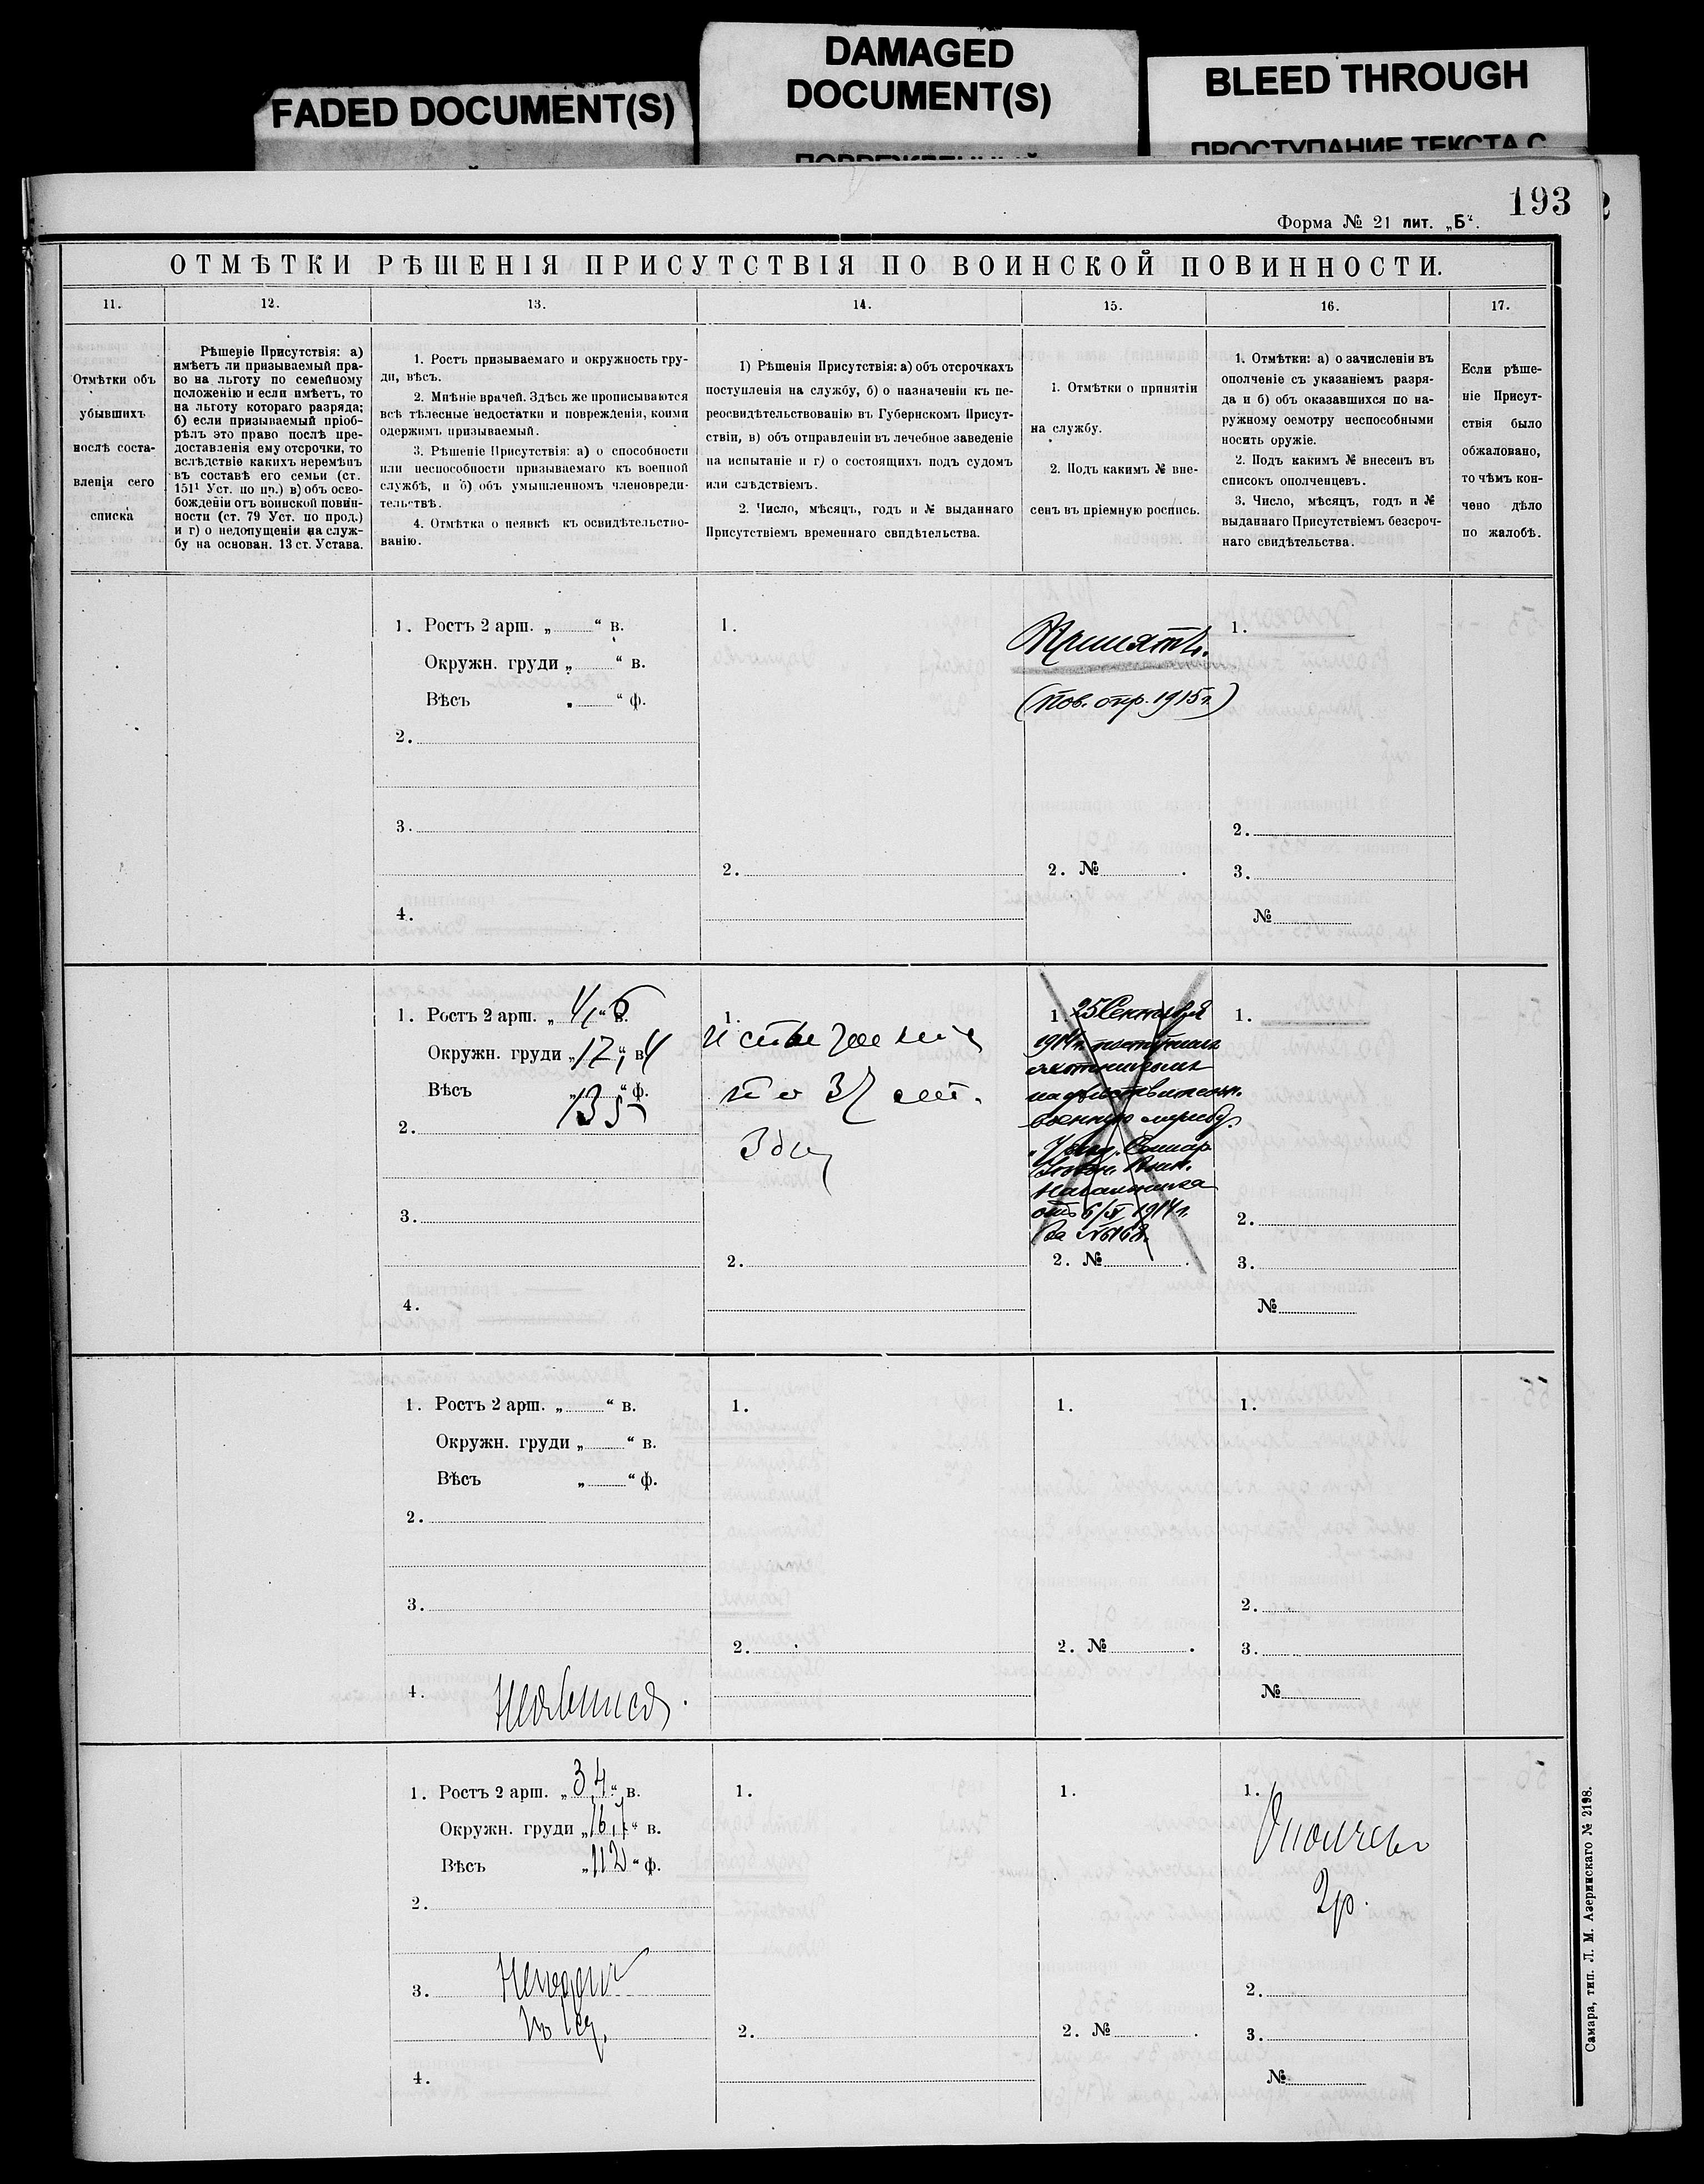 FADED DOCUMENT(S)
DAMAGED
DOCUMENT(S)
BLEED THROUGH
ПРОСТУПАНИЕ ТЕКСТА С
193
Форма № 21 лит. „Б“.
ОТМѢТКИ РѢШЕНІЯ ПРИСУТСТВІЯ ПО ВОИНСКОЙ ПОВИННОСТИ.
11.
12.
13.
14.
15.
16.
17.
Отмѣтки объ
убывшихъ
послѣ соста-
вленія сего
списка
Рѣшеніе Присутствія: а)
имѣетъ ли призываемый пра-
во на льготу по семейному
положенію и если имѣетъ, то
на льготу котораго разряда;
б) если призываемый пріоб-
рѣлъ это право послѣ пре-
доставленія ему отсрочки, то
вслѣдствіе какихъ перемѣнъ
въ составѣ его семьи (ст.
151¹ Уст. по пр.) в) объ осво-
божденіи отъ воинской повин-
ности (ст. 79 Уст. по прод.)
и г) о недопущеніи на служ-
бу на основан. 13 ст. Устава.
1. Ростъ призываемаго и окружность гру-
ди, вѣсъ.
2. Мнѣніе врачей. Здѣсь же прописываются
всѣ тѣлесные недостатки и поврежденія, коими
одержимъ призываемый.
3. Рѣшеніе Присутствія: а) о способности
или неспособности призываемаго къ военной
службѣ, и б) объ умышленномъ членовреди-
тельствѣ.
4. Отмѣтка о неявкѣ къ освидѣтельство-
ванію.
1) Рѣшенія Присутствія: а) объ отсрочкахъ
поступленія на службу, б) о назначеніи къ пе-
реосвидѣтельствованію въ Губернскомъ Присут-
ствіи, в) объ отправленіи въ лечебное заведеніе
на испытаніе и г) о состоящихъ подъ судомъ
или слѣдствіемъ.
2. Число, мѣсяцъ, годъ и № выданнаго
Присутствіемъ временнаго свидѣтельства.
1. Отмѣтки о принятіи
на службу.
2. Подъ какимъ № вне-
сенъ въ пріемную роспись.
1. Отмѣтки: а) о зачисленіи въ
ополченіе съ указаніемъ разря-
да и б) объ оказавшихся по на-
ружному осмотру неспособными
носить оружіе.
2. Подъ какимъ № внесенъ въ
списокъ ополченцевъ.
3. Число, мѣсяцъ, годъ и №
выданнаго Присутствіемъ безсроч-
наго свидѣтельства.
Если рѣше-
ніе Присут-
ствія было
обжаловано,
то чѣмъ кон-
чено дѣло
по жалобѣ.
1. Ростъ 2 арш. „ “ в.
Окружн. груди „ “ в.
Вѣсъ „ “ ф.
2.
3.
4.
1.
2.
Принятъ.
(пов. отр. 1915 г.)
2. №
1.
2.
3.
№
1. Ростъ 2 арш. „ 4/6 “ в.
Окружн. груди „ 17, 4 “ в.
Вѣсъ „ 135 “ ф.
2.
3.
4.
1.
2.
1. 25 Сентября
1914 г. поступилъ
охотникомъ
на дѣйствительн.
военную службу.
Начальника
отъ 6/XI 1914 г.
За № 6168.
2. №
1.
2.
3.
№
1. Ростъ 2 арш. „ “ в.
Окружн. груди „ “ в.
Вѣсъ „ “ ф.
2.
3.
4. Неявился.
1.
2.
1.
2. №
1.
2.
3.
№
1. Ростъ 2 арш. „ 3 4 “ в.
Окружн. груди „ 16,7 “ в.
Вѣсъ „ 112 “ ф.
2.
3. Негоденъ
4.
1.
2.
1.
2. №
1. Ополчен
2 р.
2.
3.
№
Самара, тип. Л. М. Азеринскаго № 2198.